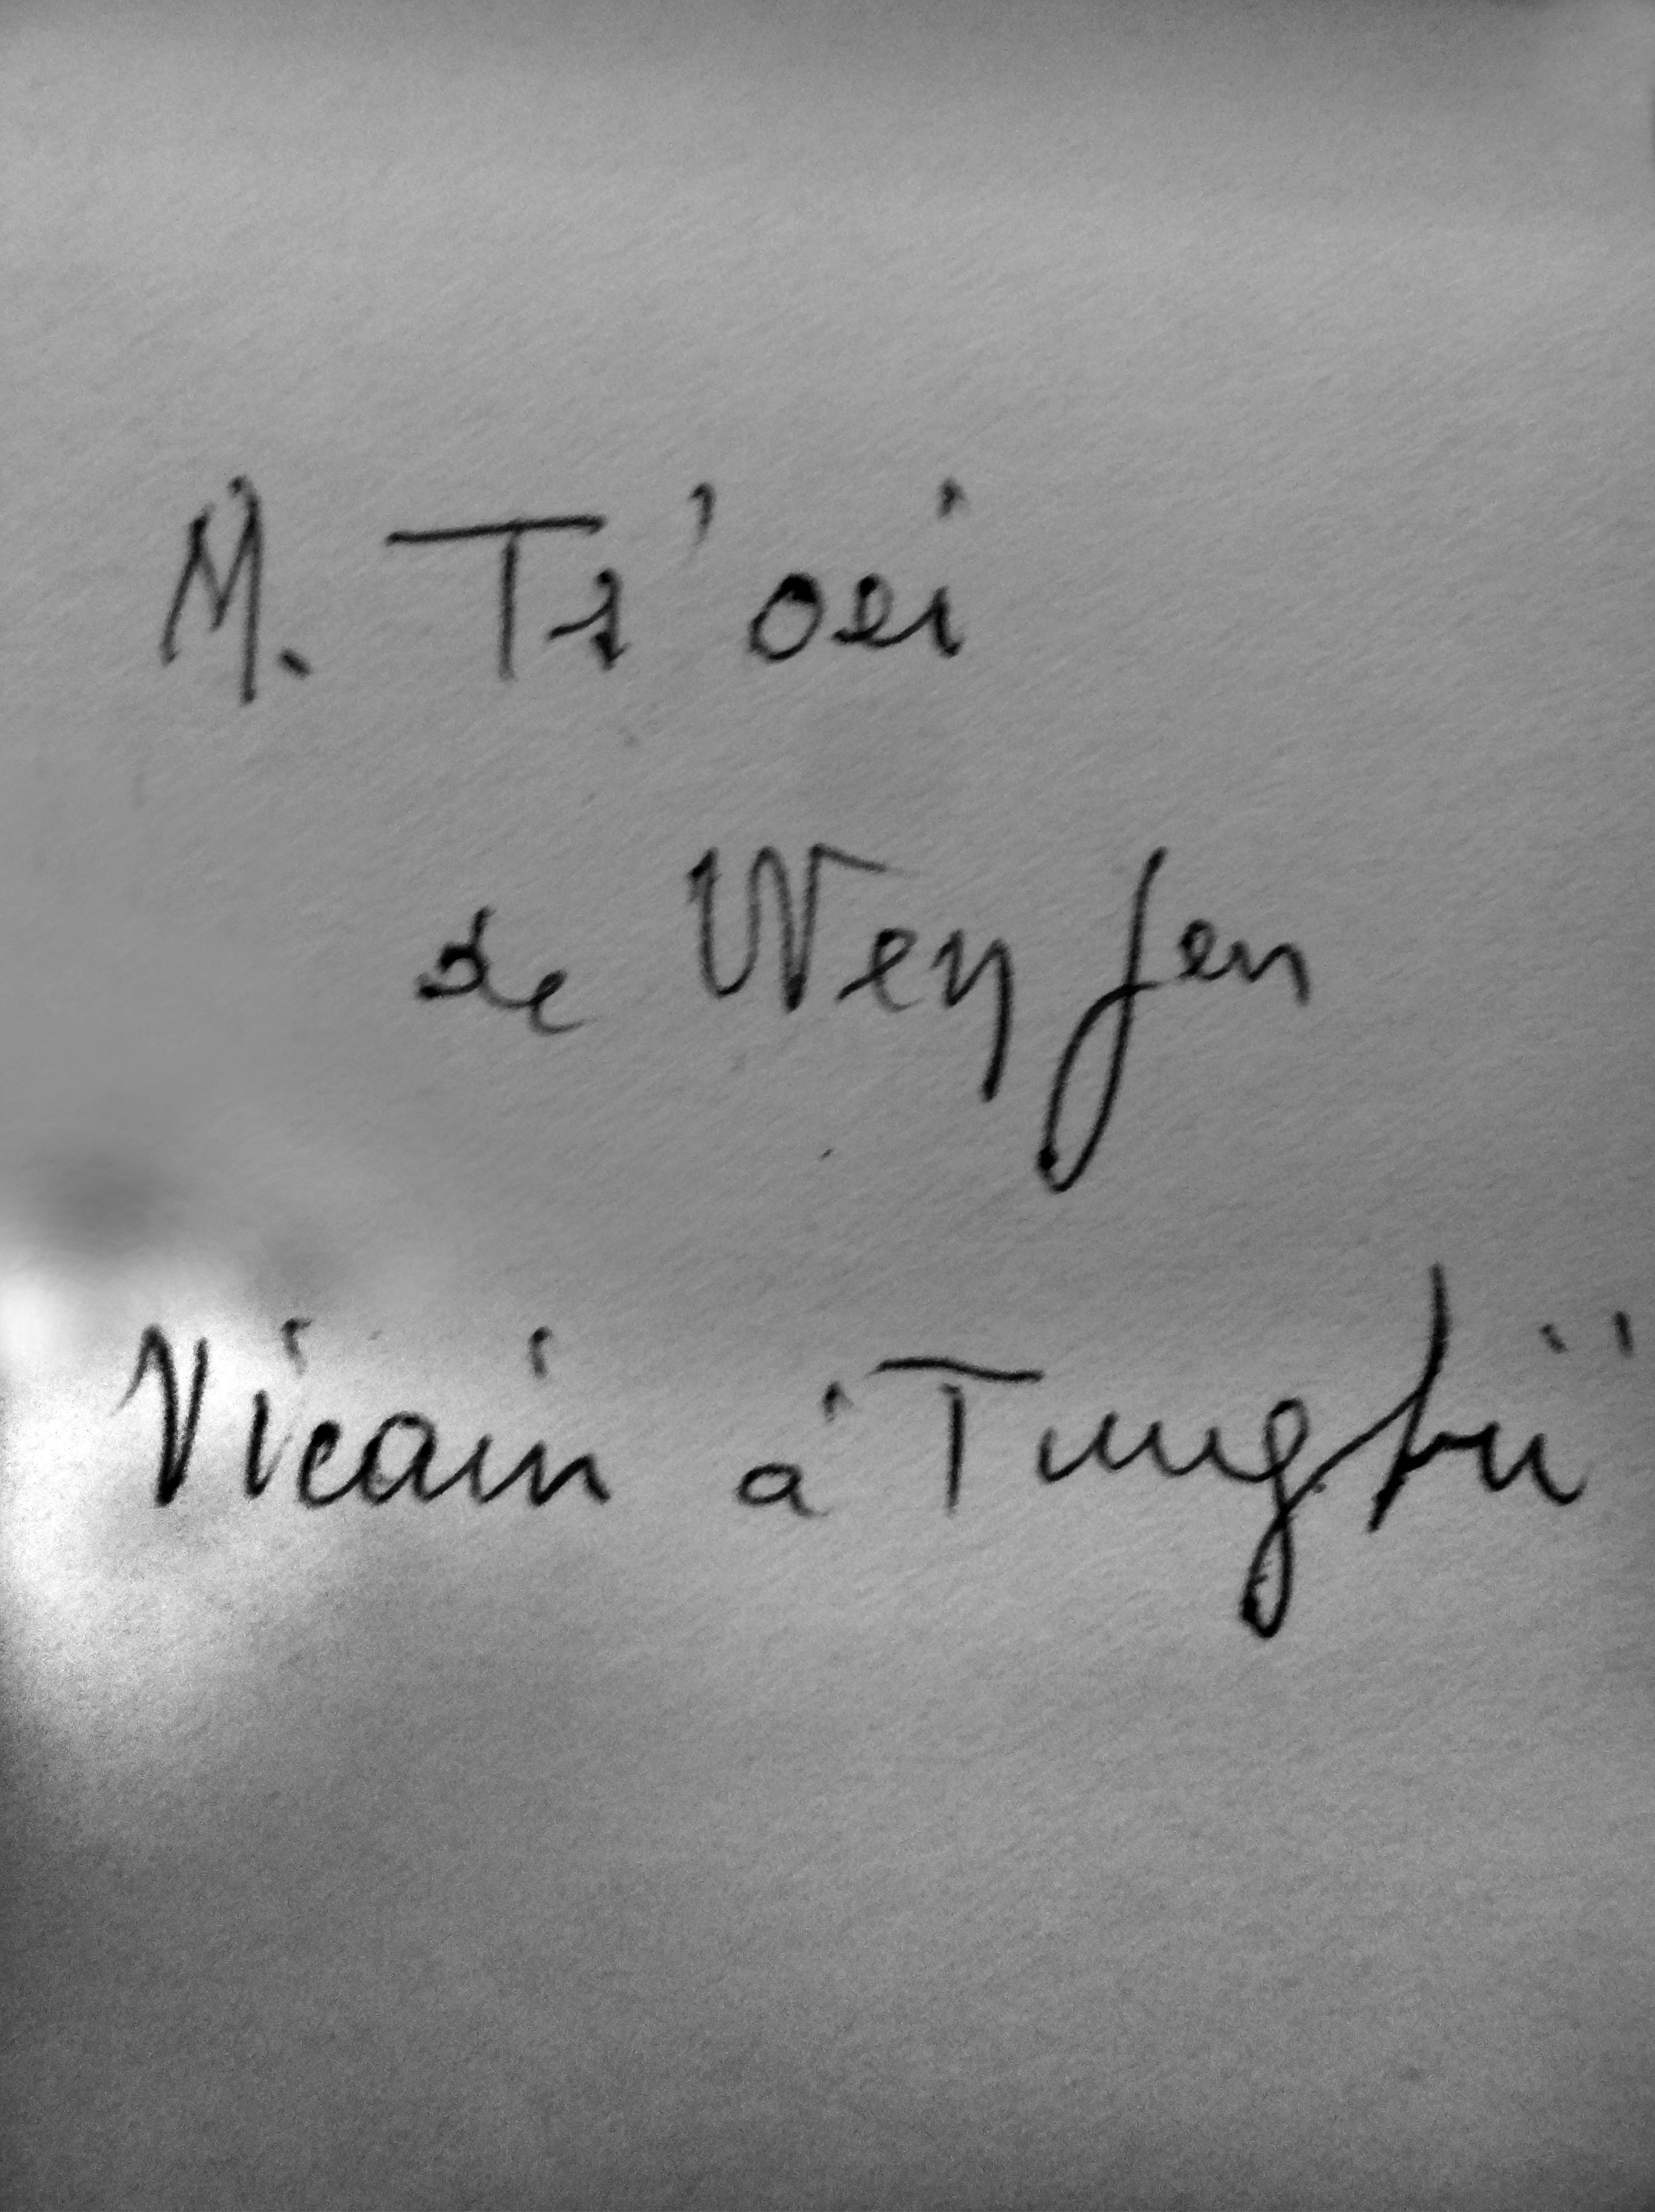 M. Ts'oei
de Weyfen
Vicair à Tungkü